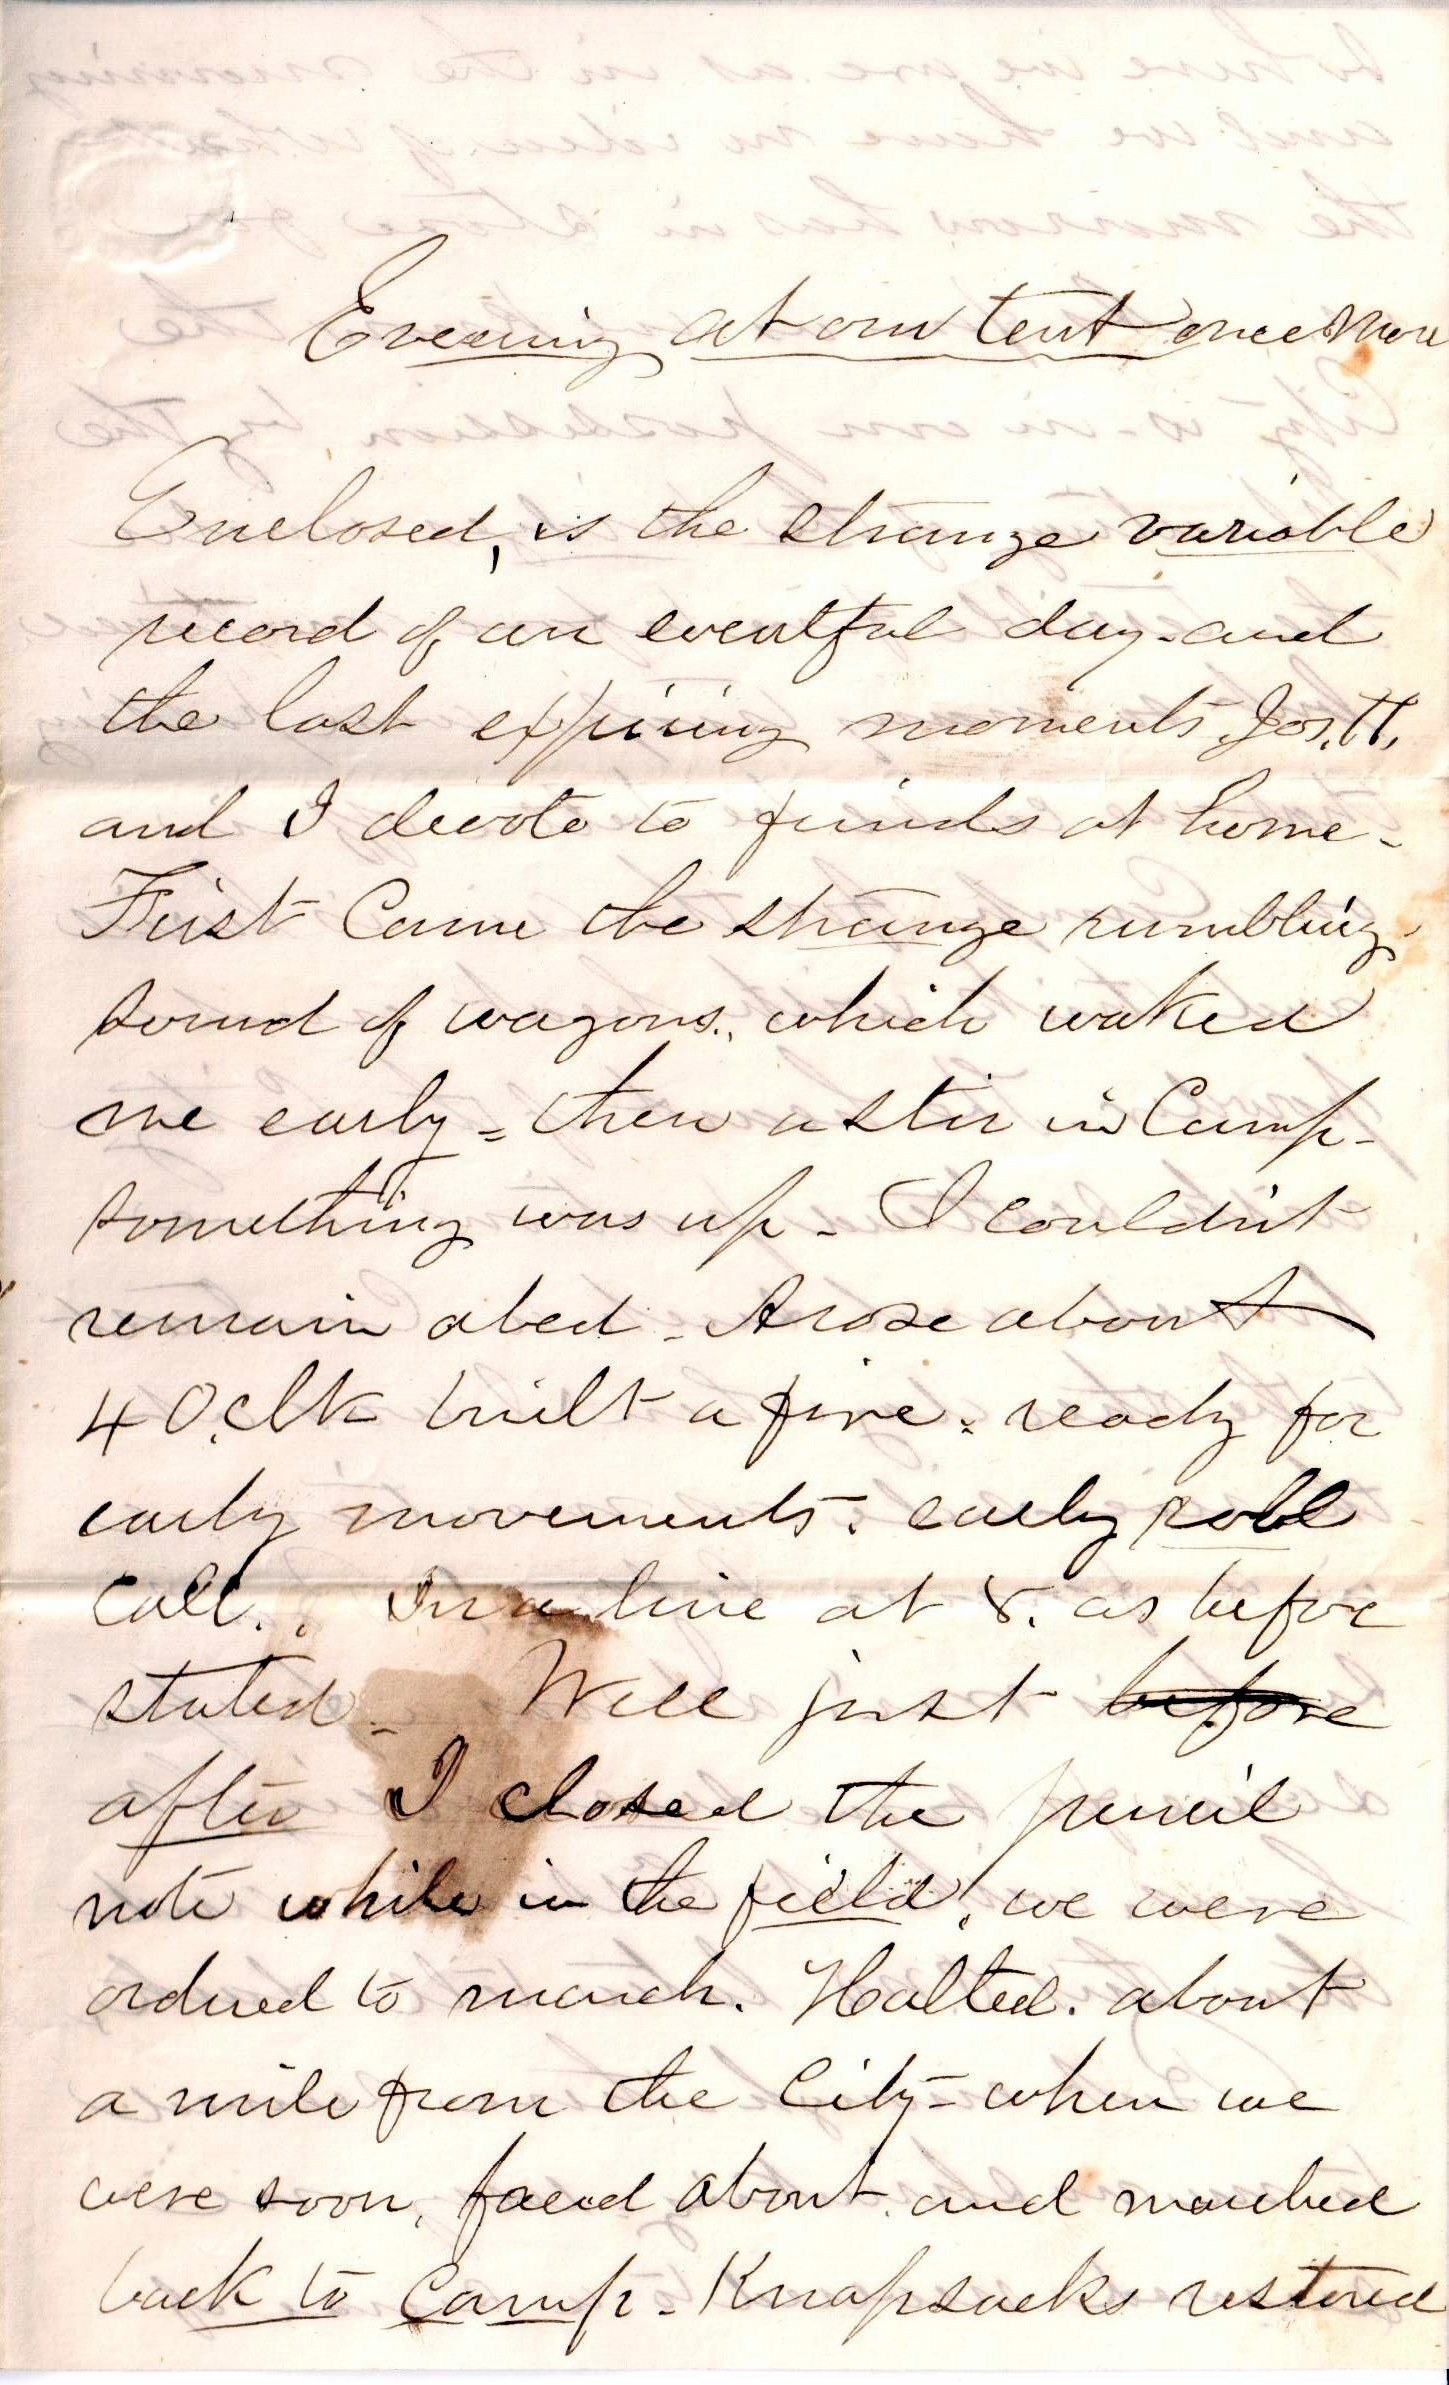 Evening at our tent once more
Enclosed, is the strange variable
record of an eventful day - and
the last expiring moments Jos. H.
and I devote to friends at home -
First Came the strange rumbling
sound of wagons., which waked
me early = then a stir in Camp -
something was up - I couldn't
remain abed - Arose about
4 O,clk built a fire - ready for
early movements - early roll
Call. In a line at 8. as before
stated - Well just before
after I closed the pencil
note while in the field, we were
ordered to march. Halted. about
a mile from the City = when we
were soon, faced about and marched
back to Camp - Knapsacks restored